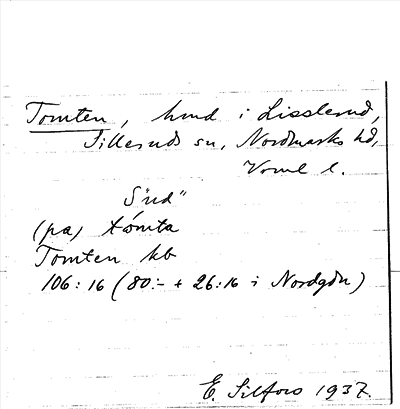 Tomten, hmd i Lisslerud,
Silleruds sn, Nordmarks hd,
Värml l.
S"nd"
(på) tòmta
Tomten kb
106:16 (80:- + 26:16 i Nordgdn)
E. Silfors 1937